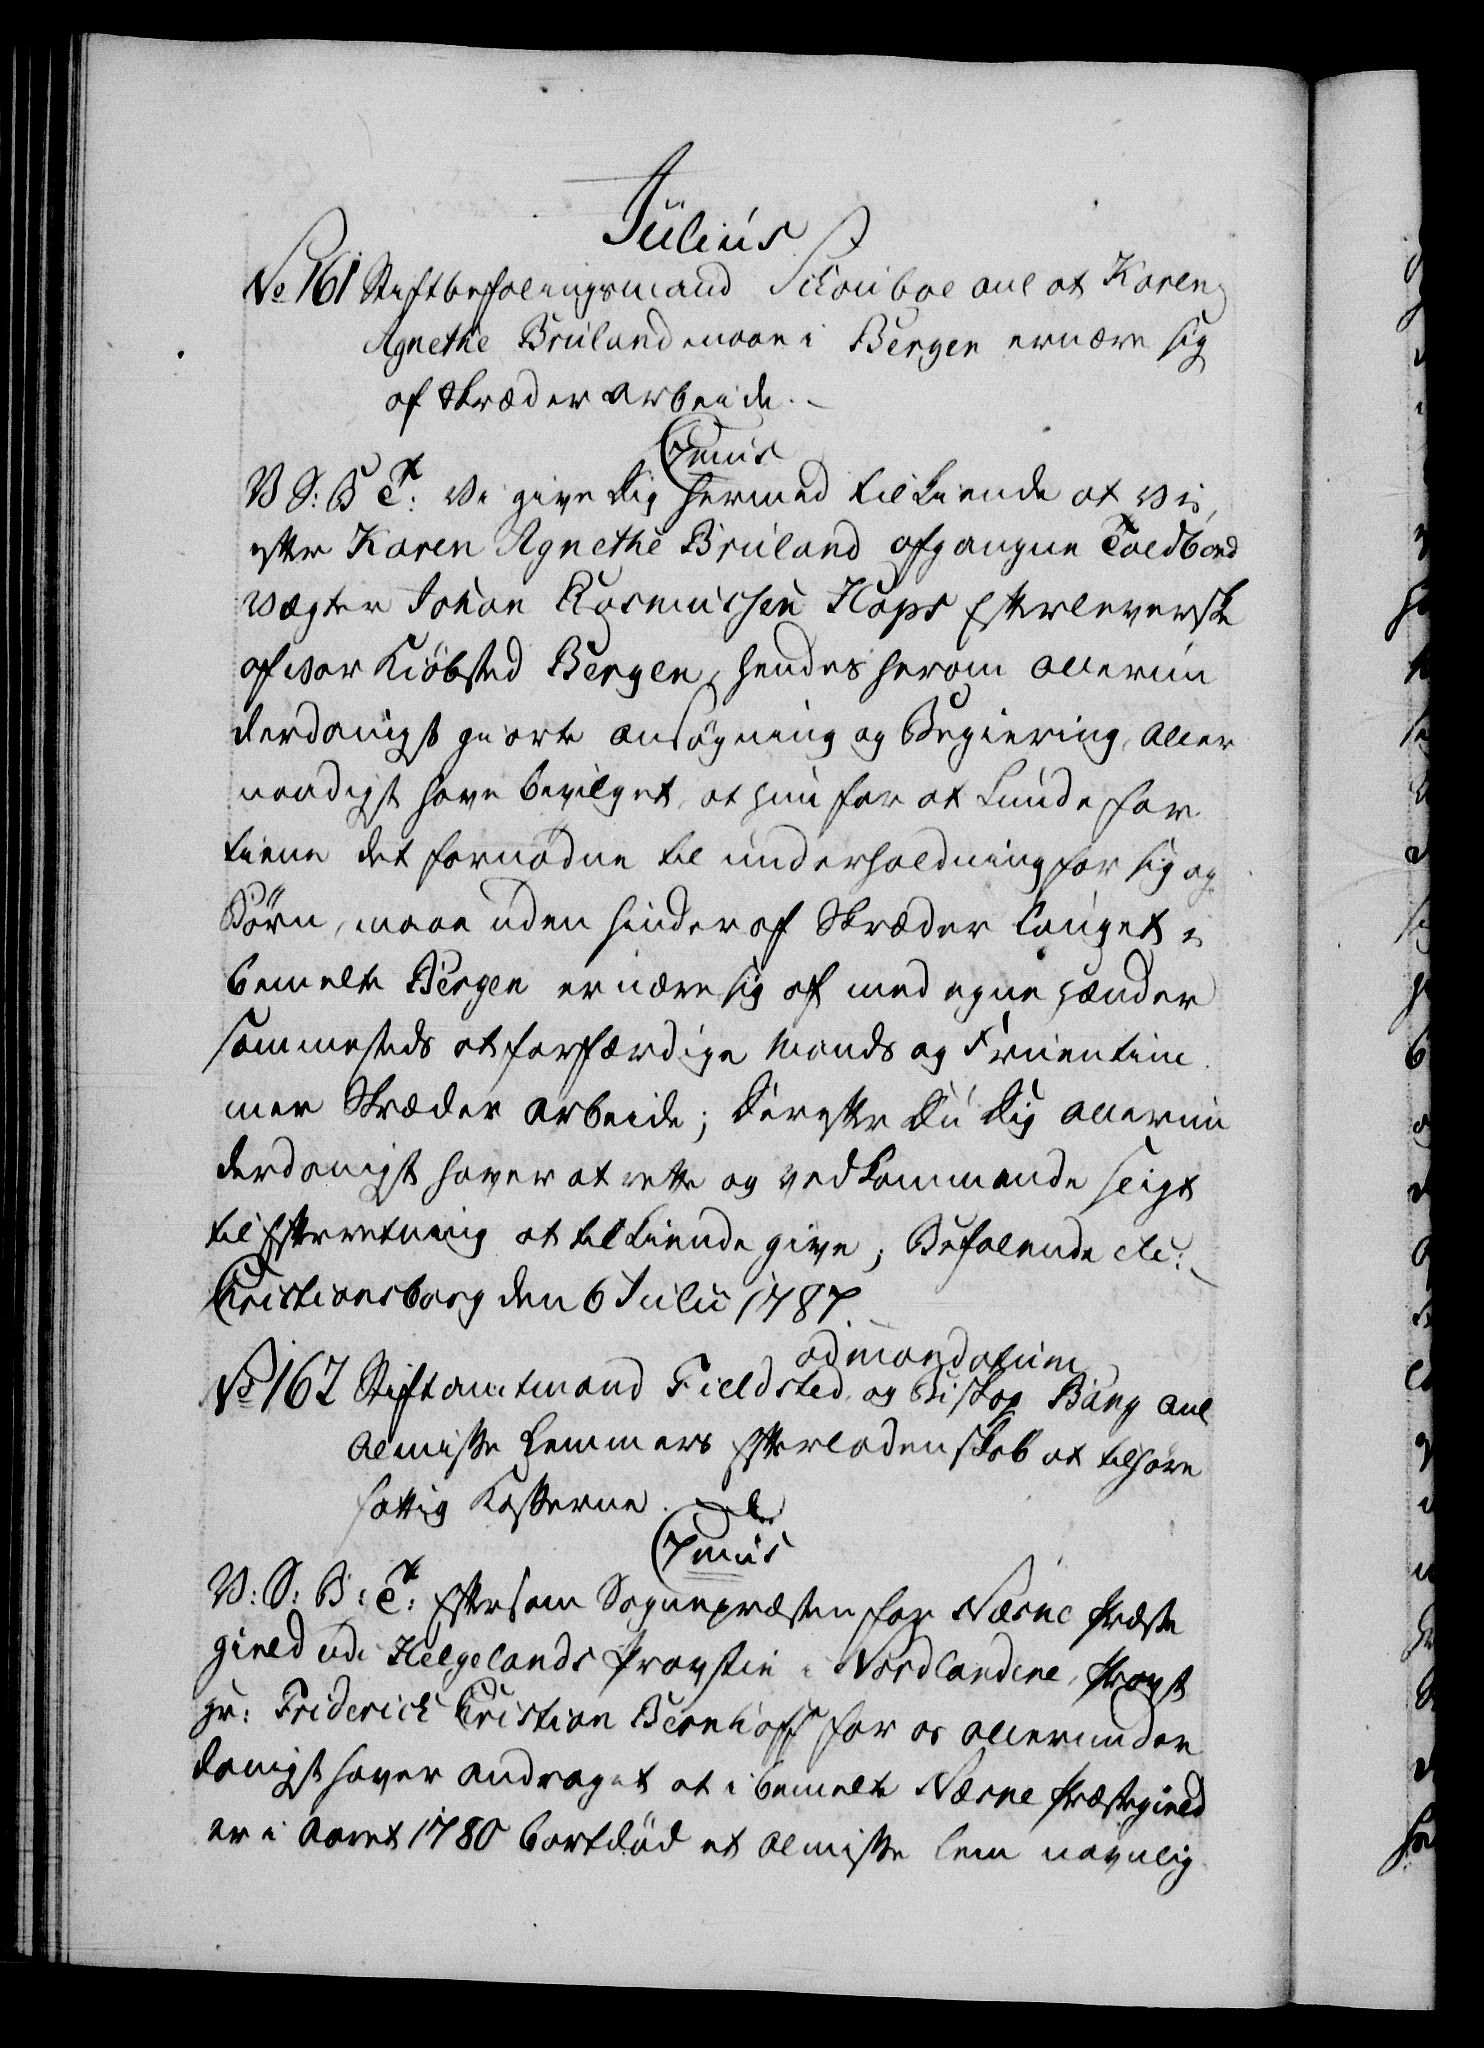 Julius
No 161 Stiftbefalingsmand Schouboe anl at Karen
Agnethe Bruland maae i Bergen ernære sig
af Skræder arbeide. –
C 7mus
V S: G T: Vi give dig hermed tilkiende at Vi,
efter Karen Agnethe Bruland afgangne Toldbod
vægter Johan Rasmussen Haps Efterleverske
af vor Kiøbsted Bergen, hendes herom allerun
derdanigst giorte ansøgning og Begiering, aller
naadigst have bevilget, at hun for at kunde for
tiene det fornødne til underholdning for sig og
Børn, maae uden hinder af Skræder Lauget i
bemelte Bergen ernære sig af med egne hænder
sammesteds at forfærdige Mands og Fruentim
mer Skræder arbeide; Derefter Du dig allerun
derdanigst haver at rette og vedkommende sligt
til Efterretning at tilkiende give; Befalende etc: –
Christiansborg den 6 Julii 1787.
ad mandatum
No 162 Stiftamtmand Fieldsted og Biskop Bang anl
Almisse Lemmers Efterladenskab at tilhøre
fattig Kasserne.
C 7mus
V: S: G: T: Eftersom Sognepræsten for Næsne Præste
gield udi Helgelands Provstie i Nordlandene, Provst
hr: Friderich Christian Bernhoft for os allerunder
danigst haver andraget at i bemelte Næsne Præstegield
er i Aaret 1780 bortdød et Almisse Lem navnlig